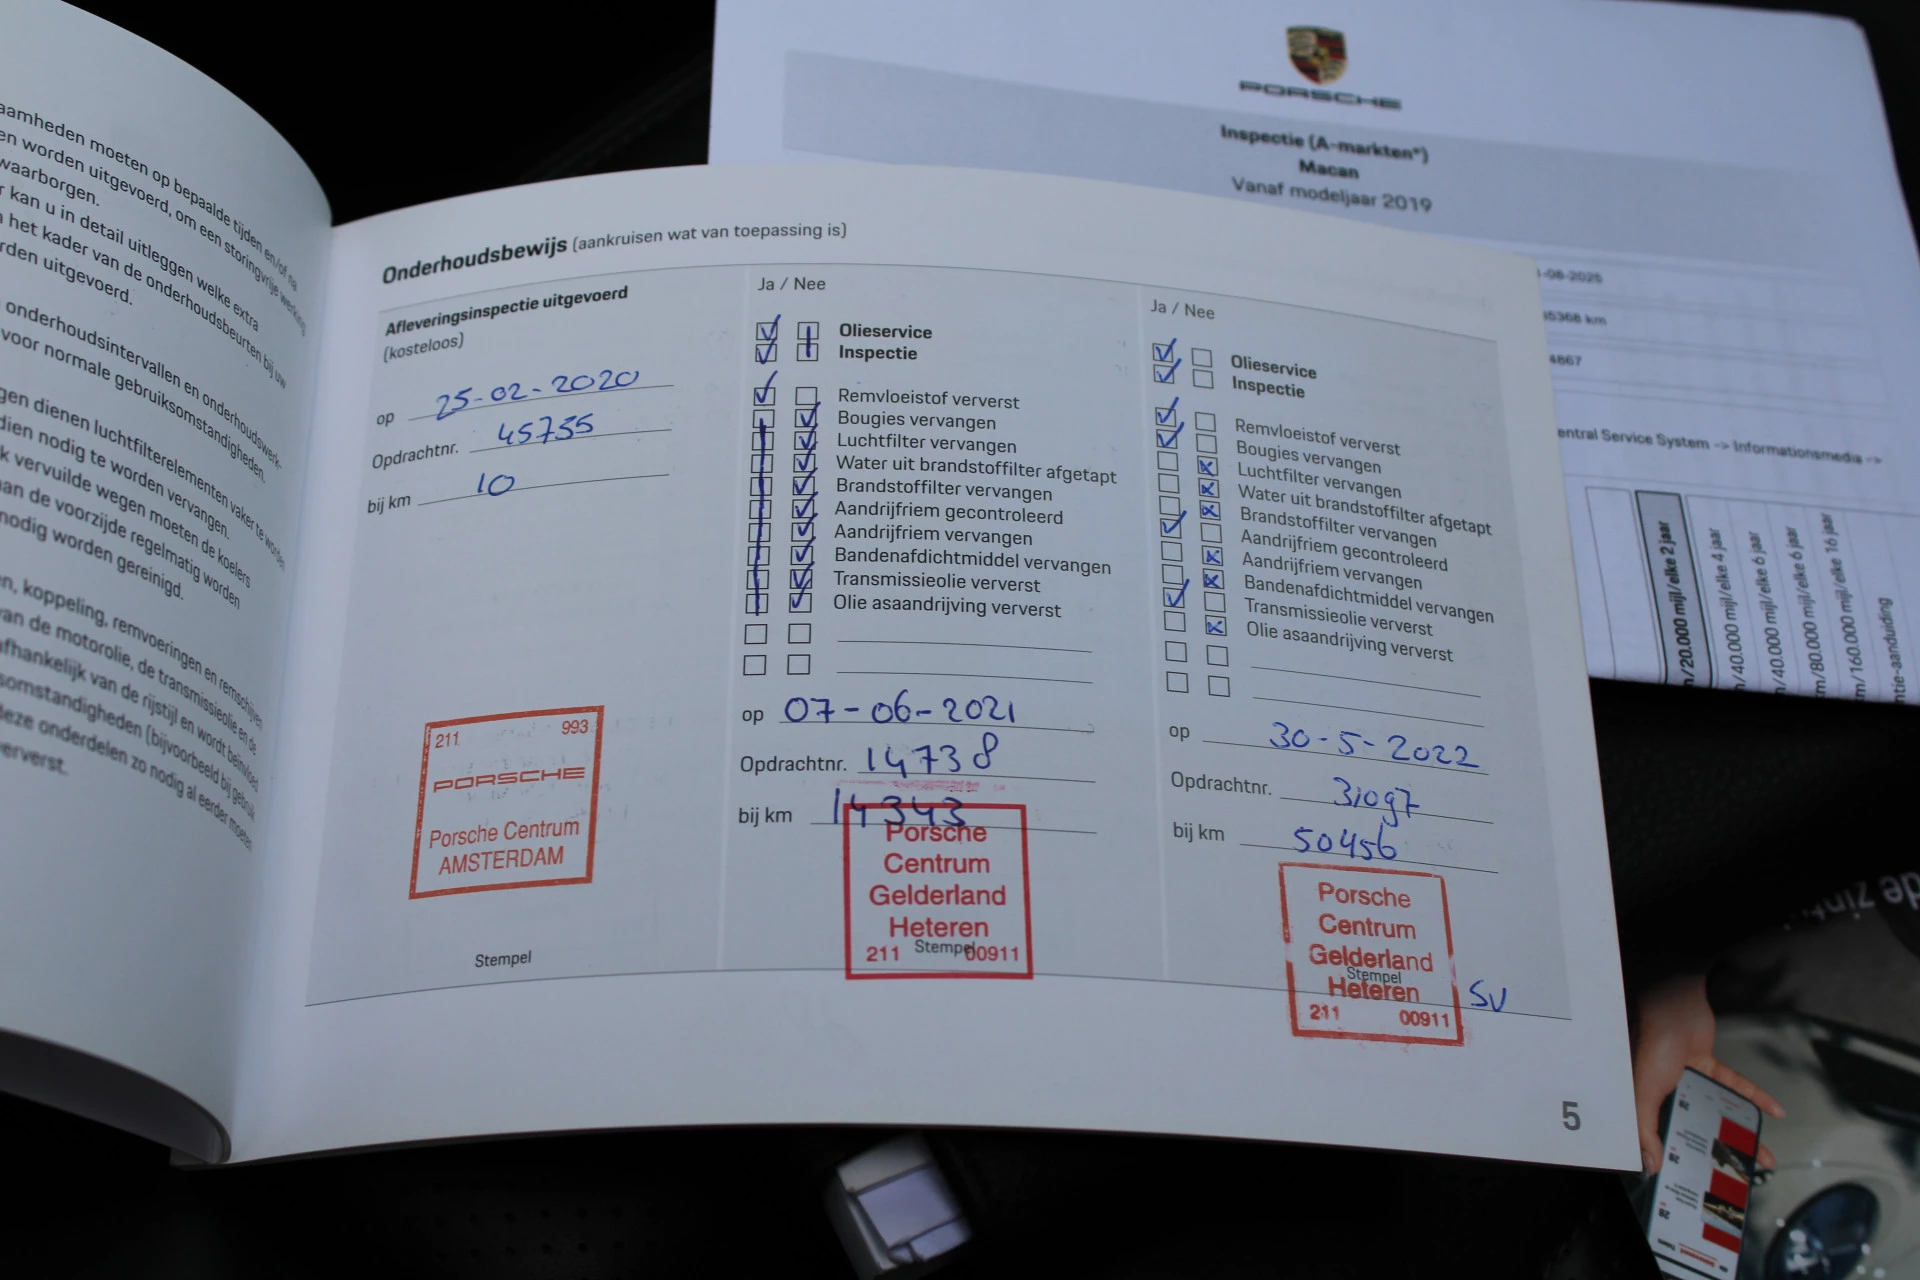 aamheden moeten op bepaalde tijden en/of na
en worden uitgevoerd, om een storingvrije werking
waarborgen.
r kan u in detail uitleggen welke extra
het kader van de onderhoudsbeurten bij uw
rden uitgevoerd.
onderhoudsintervallen en onderhoudswerk-
voor normale gebruiksomstandigheden.
gen dienen luchtfilterelementen vaker te worden
dien nodig te worden vervangen.
k vervuilde wegen moeten de koelers
an de voorzijde regelmatig worden
nodig worden gereinigd.
n, koppeling, remvoeringen en remschijven
van de motorolie, de transmissieolie en de
afhankelijk van de rijstijl en wordt beïnvloed
somstandigheden (bijvoorbeeld bij gebruik
deze onderdelen zo nodig al eerder moeten
ververst.
PORSCHE
Inspectie (A-markten*)
Macan
Vanaf modeljaar 2019
-06-2025
5368 km
4867
entral Service System -> Informationsmedia ->
m/20.000 mijl/elke 2 jaar
m/40.000 mijl/elke 4 jaar
m/40.000 mijl/elke 6 jaar
m/80.000 mijl/elke 6 jaar
m/160.000 mijl/elke 16 jaar
ntie-aanduiding
Onderhoudsbewijs (aankruisen wat van toepassing is)
Afleveringsinspectie uitgevoerd
(kosteloos)
op 25-02-2020
Opdrachtnr. 45755
bij km 10
211 993
PORSCHE
Porsche Centrum
AMSTERDAM
Stempel
Ja / Nee
Olieservice
Inspectie
Remvloeistof ververst
Bougies vervangen
Luchtfilter vervangen
Water uit brandstoffilter afgetapt
Brandstoffilter vervangen
Aandrijfriem gecontroleerd
Aandrijfriem vervangen
Bandenafdichtmiddel vervangen
Transmissieolie ververst
Olie asaandrijving ververst
op 07-06-2021
Opdrachtnr. 14738
bij km 14343
Porsche
Centrum
Gelderland
Heteren
Stempel
211 00911
Ja / Nee
Olieservice
Inspectie
Remvloeistof ververst
Bougies vervangen
Luchtfilter vervangen
Water uit brandstoffilter afgetapt
Brandstoffilter vervangen
Aandrijfriem gecontroleerd
Aandrijfriem vervangen
Bandenafdichtmiddel vervangen
Transmissieolie ververst
Olie asaandrijving ververst
op 30-5-2022
Opdrachtnr. 31097
bij km 50456
Porsche
Centrum
Gelderland
Stempel
Heteren
211 00911
SV
5